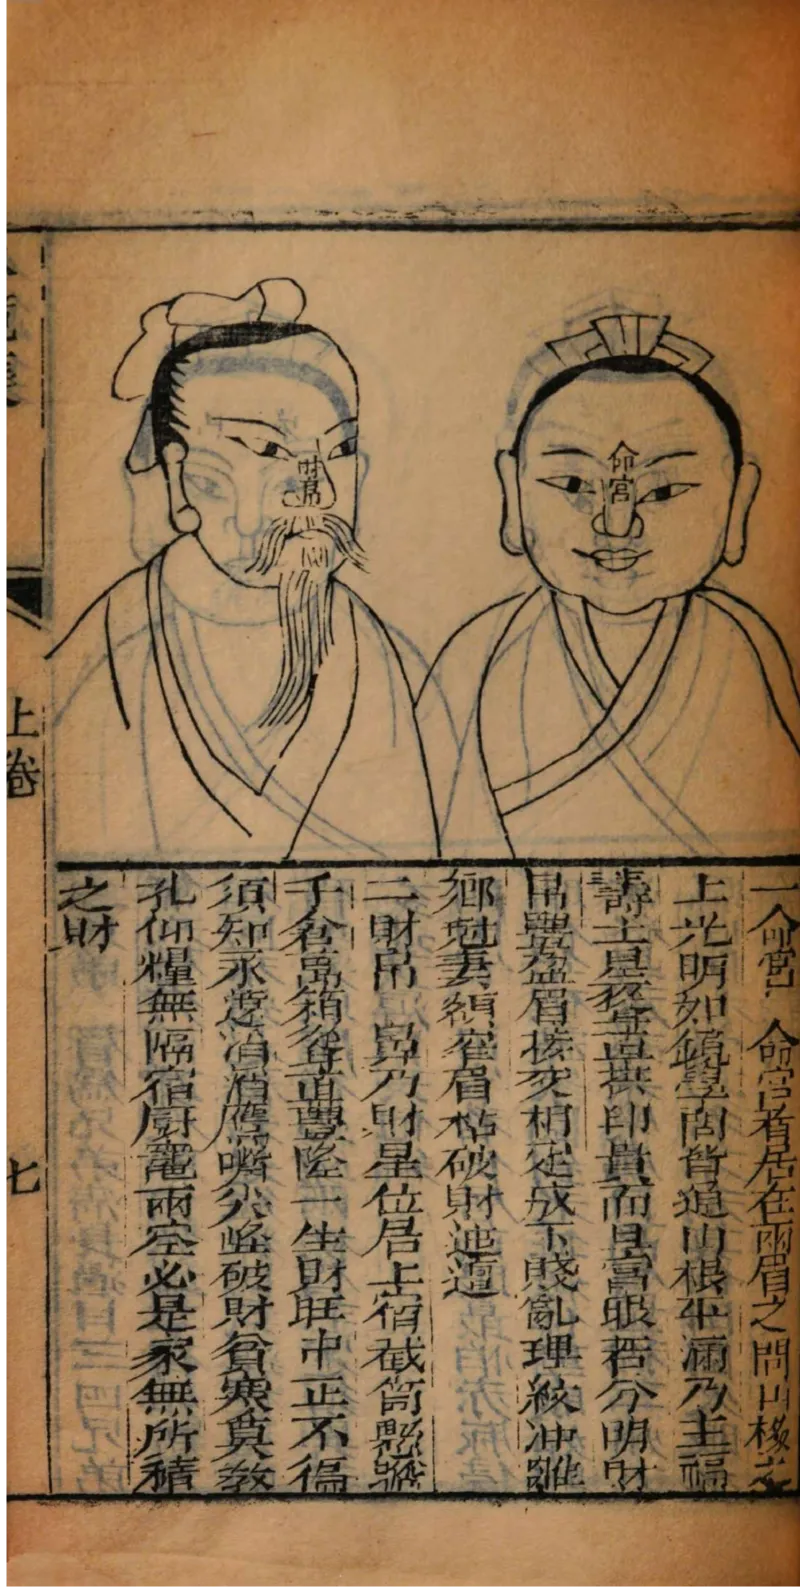 命宮
財帛
一命宮 命宮者居在兩眉之間山根之
上光明如鏡學問皆通山根平滿乃主福
壽土星聳直拱印貴而且富眼若分明財
帛豐盈眉接交相定成下賤亂理紋冲離
鄉尅妻額窄眉枯破財迍邅
二財帛 鼻乃財星位居土宿截筒懸膽
千倉萬箱聳直豐隆一生財旺中正不偏
須知永遠滔滔鷹嘴尖峰破財貧寒莫教
孔仰糧無隔宿厨竈兩空必是家無所積
之財
上卷
七